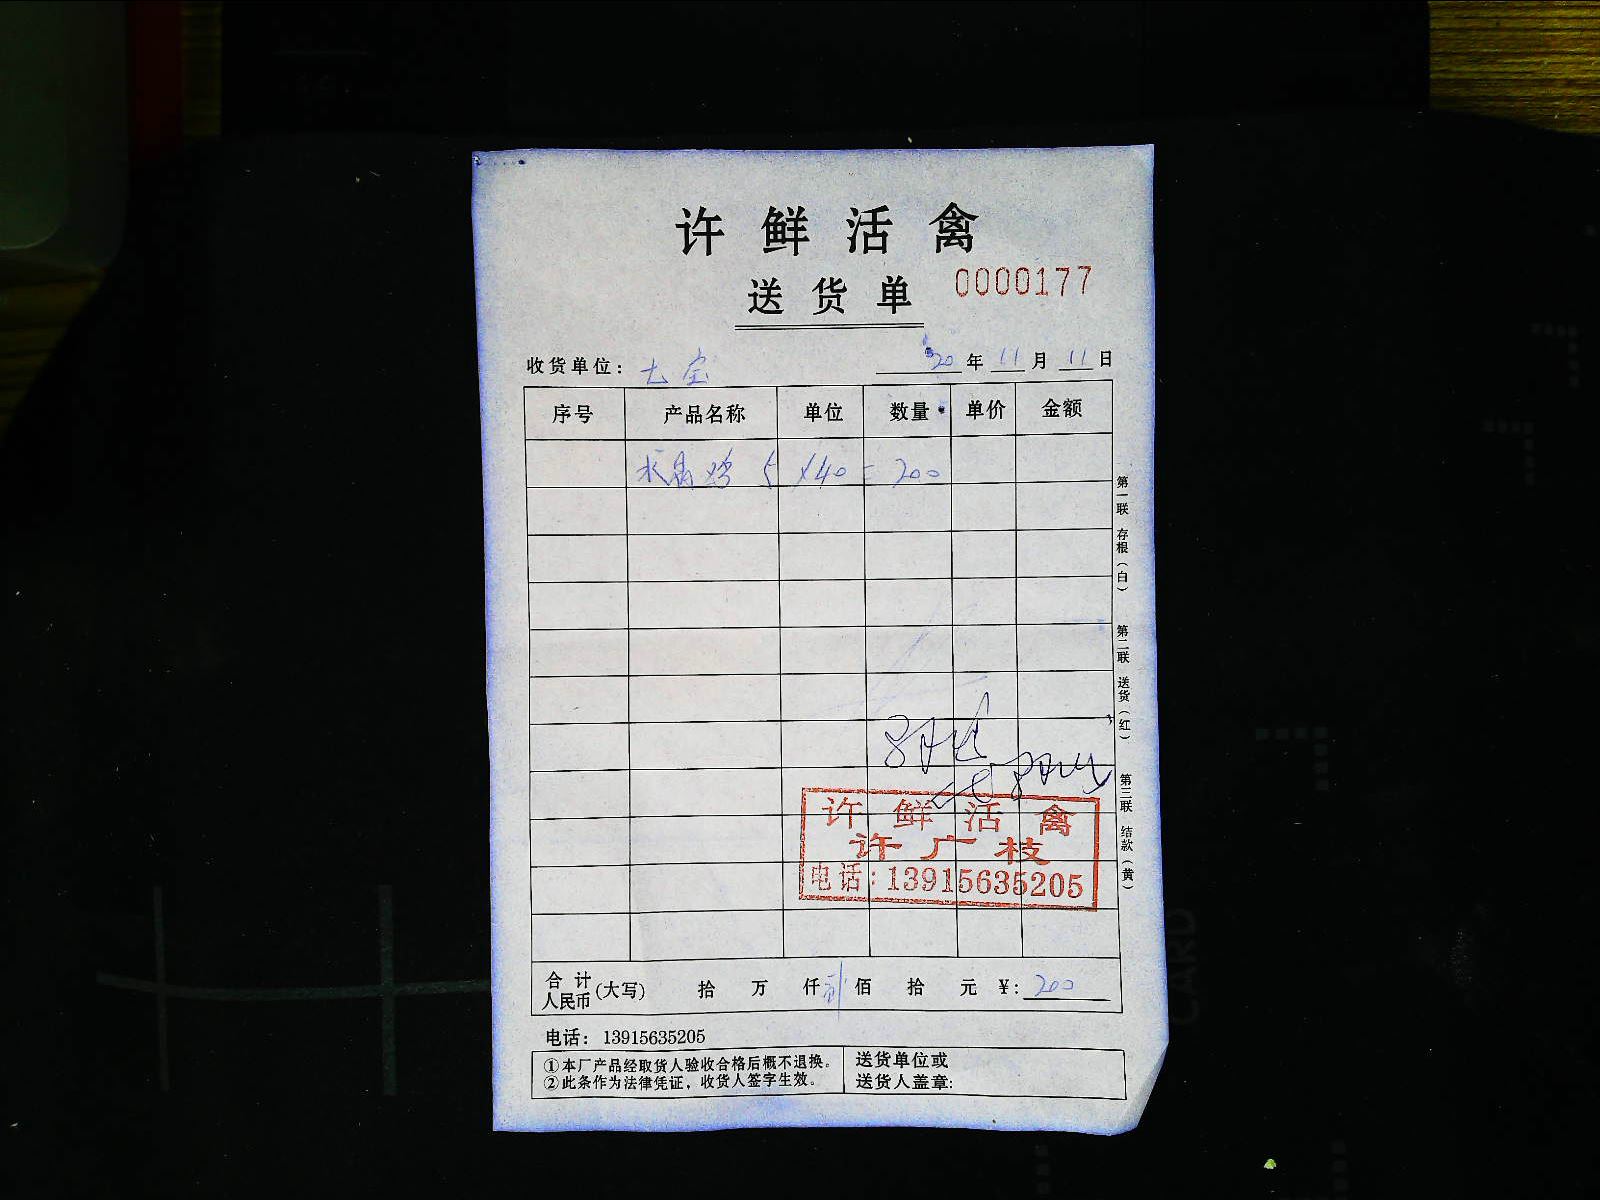 许鲜活禽
送货单 0000177
收货单位：七宝 20年11月11日
序号 产品名称 单位 数量 单价 金额
水晶鸡 5×40=200
第一联 存根（白） 第二联 送货（红） 第三联 结款（黄）
许鲜活禽
许广枝
电话：13915635205
合计人民币(大写) 拾 万 仟 贰佰 拾 元 ¥：200
电话： 13915635205
①本厂产品经取货人验收合格后概不退换。
②此条作为法律凭证，收货人签字生效。
送货单位或
送货人盖章：